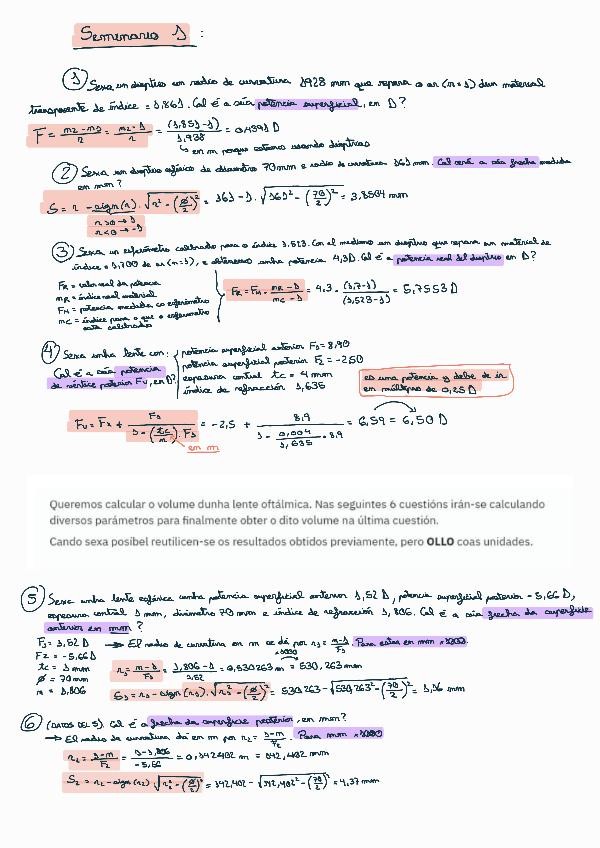 Seminario 1 :
① Sexa un dioptrio con radio de curvatura 1928 mm que separa o ar (n=1) dun material
transparente de índice = 1,851. Cal é a súa potencia superficial, en D?
F = (n2 - n1)/r = (n2 - 1)/r = (1,851 - 1)/1,928 = 0,4391 D
↳ en m porque estamos usando dioptrías
② Sexa un dioptrio esférico de diámetro 70 mm e radio de curvatura 161 mm. Cal será a súa frecha medida
en mm?
S = r - sign(r) · √(r² - (ø/2)²) = 161 - 1 · √(161² - (70/2)²) = 3,8504 mm
r > 0 → 1
r < 0 → -1
③ Sexa un esferómetro calibrado para o índice 1.523. Con el medimos un dioptrio que separa un material de
índice = 1,700 de ar (n=1), e obtemos unha potencia 4,3D. Cal é a potencia real del dioptrio en D?
FR = valor real da potencia
nR = índice real material
FM = potencia medida co esferómetro
nC = índice para o que o esferómetro
está calibrado
FR = FM · (nR - 1)/(nC - 1) = 4.3 · (1,7 - 1)/(1,523 - 1) = 5,7553 D
④ Sexa unha lente con:
Cal é a súa potencia
de vértice posterior FV, en D?
potencia superficial anterior F1 = 8,90
potencia superficial posterior F2 = -2,50
espesura central tc = 4 mm
índice de refracción 1,635
es una potencia y debe de ir
en múltiplos de 0,25 D
FV = F2 + F1/(1 - (tc/n) · F1) = -2,5 + 8,9/(1 - 0,004/1,635 · 8,9) = 6,59 = 6,50 D
en m
Queremos calcular o volume dunha lente oftálmica. Nas seguintes 6 cuestións irán-se calculando
diversos parámetros para finalmente obter o dito volume na última cuestión.
Cando sexa posíbel reutilicen-se os resultados obtidos previamente, pero OLLO coas unidades.
⑤ Sexa unha lente esférica cunha potencia superficial anterior 1,52 D, potencia superficial posterior -5,66 D,
espesura central 1 mm, diámetro 70 mm e índice de refracción 1,806. Cal é a súa frecha da superficie
anterior en mm?
F1 = 1,52 D → El radio de curvatura en m se dá por r1 = (n-1)/F1 Para estar en mm x1000
F2 = -5,66 D
tc = 1 mm
ø = 70 mm
n = 1,806
r1 = (n - 1)/F1 = (1,806 - 1)/1,52 = 0,530263 m = 530,263 mm
x1000
S1 = r1 - sign(r1) · √(r1² - (ø/2)²) = 530.263 - √(530.263² - (70/2)²) = 1,16 mm
⑥ (DATOS DEL 5). Cal é a frecha da superficie posterior, en mm?
→ El radio de curvatura da en m por r2 = (1-n)/F2 Para mm x1000
r2 = (1-n)/F2 = (1-1,806)/-5,66 = 0,142402 m = 142,402 mm
S2 = r2 - sign(r2) · √(r2² - (ø/2)²) = 142,402 - √(142,402² - (70/2)²) = 4,37 mm